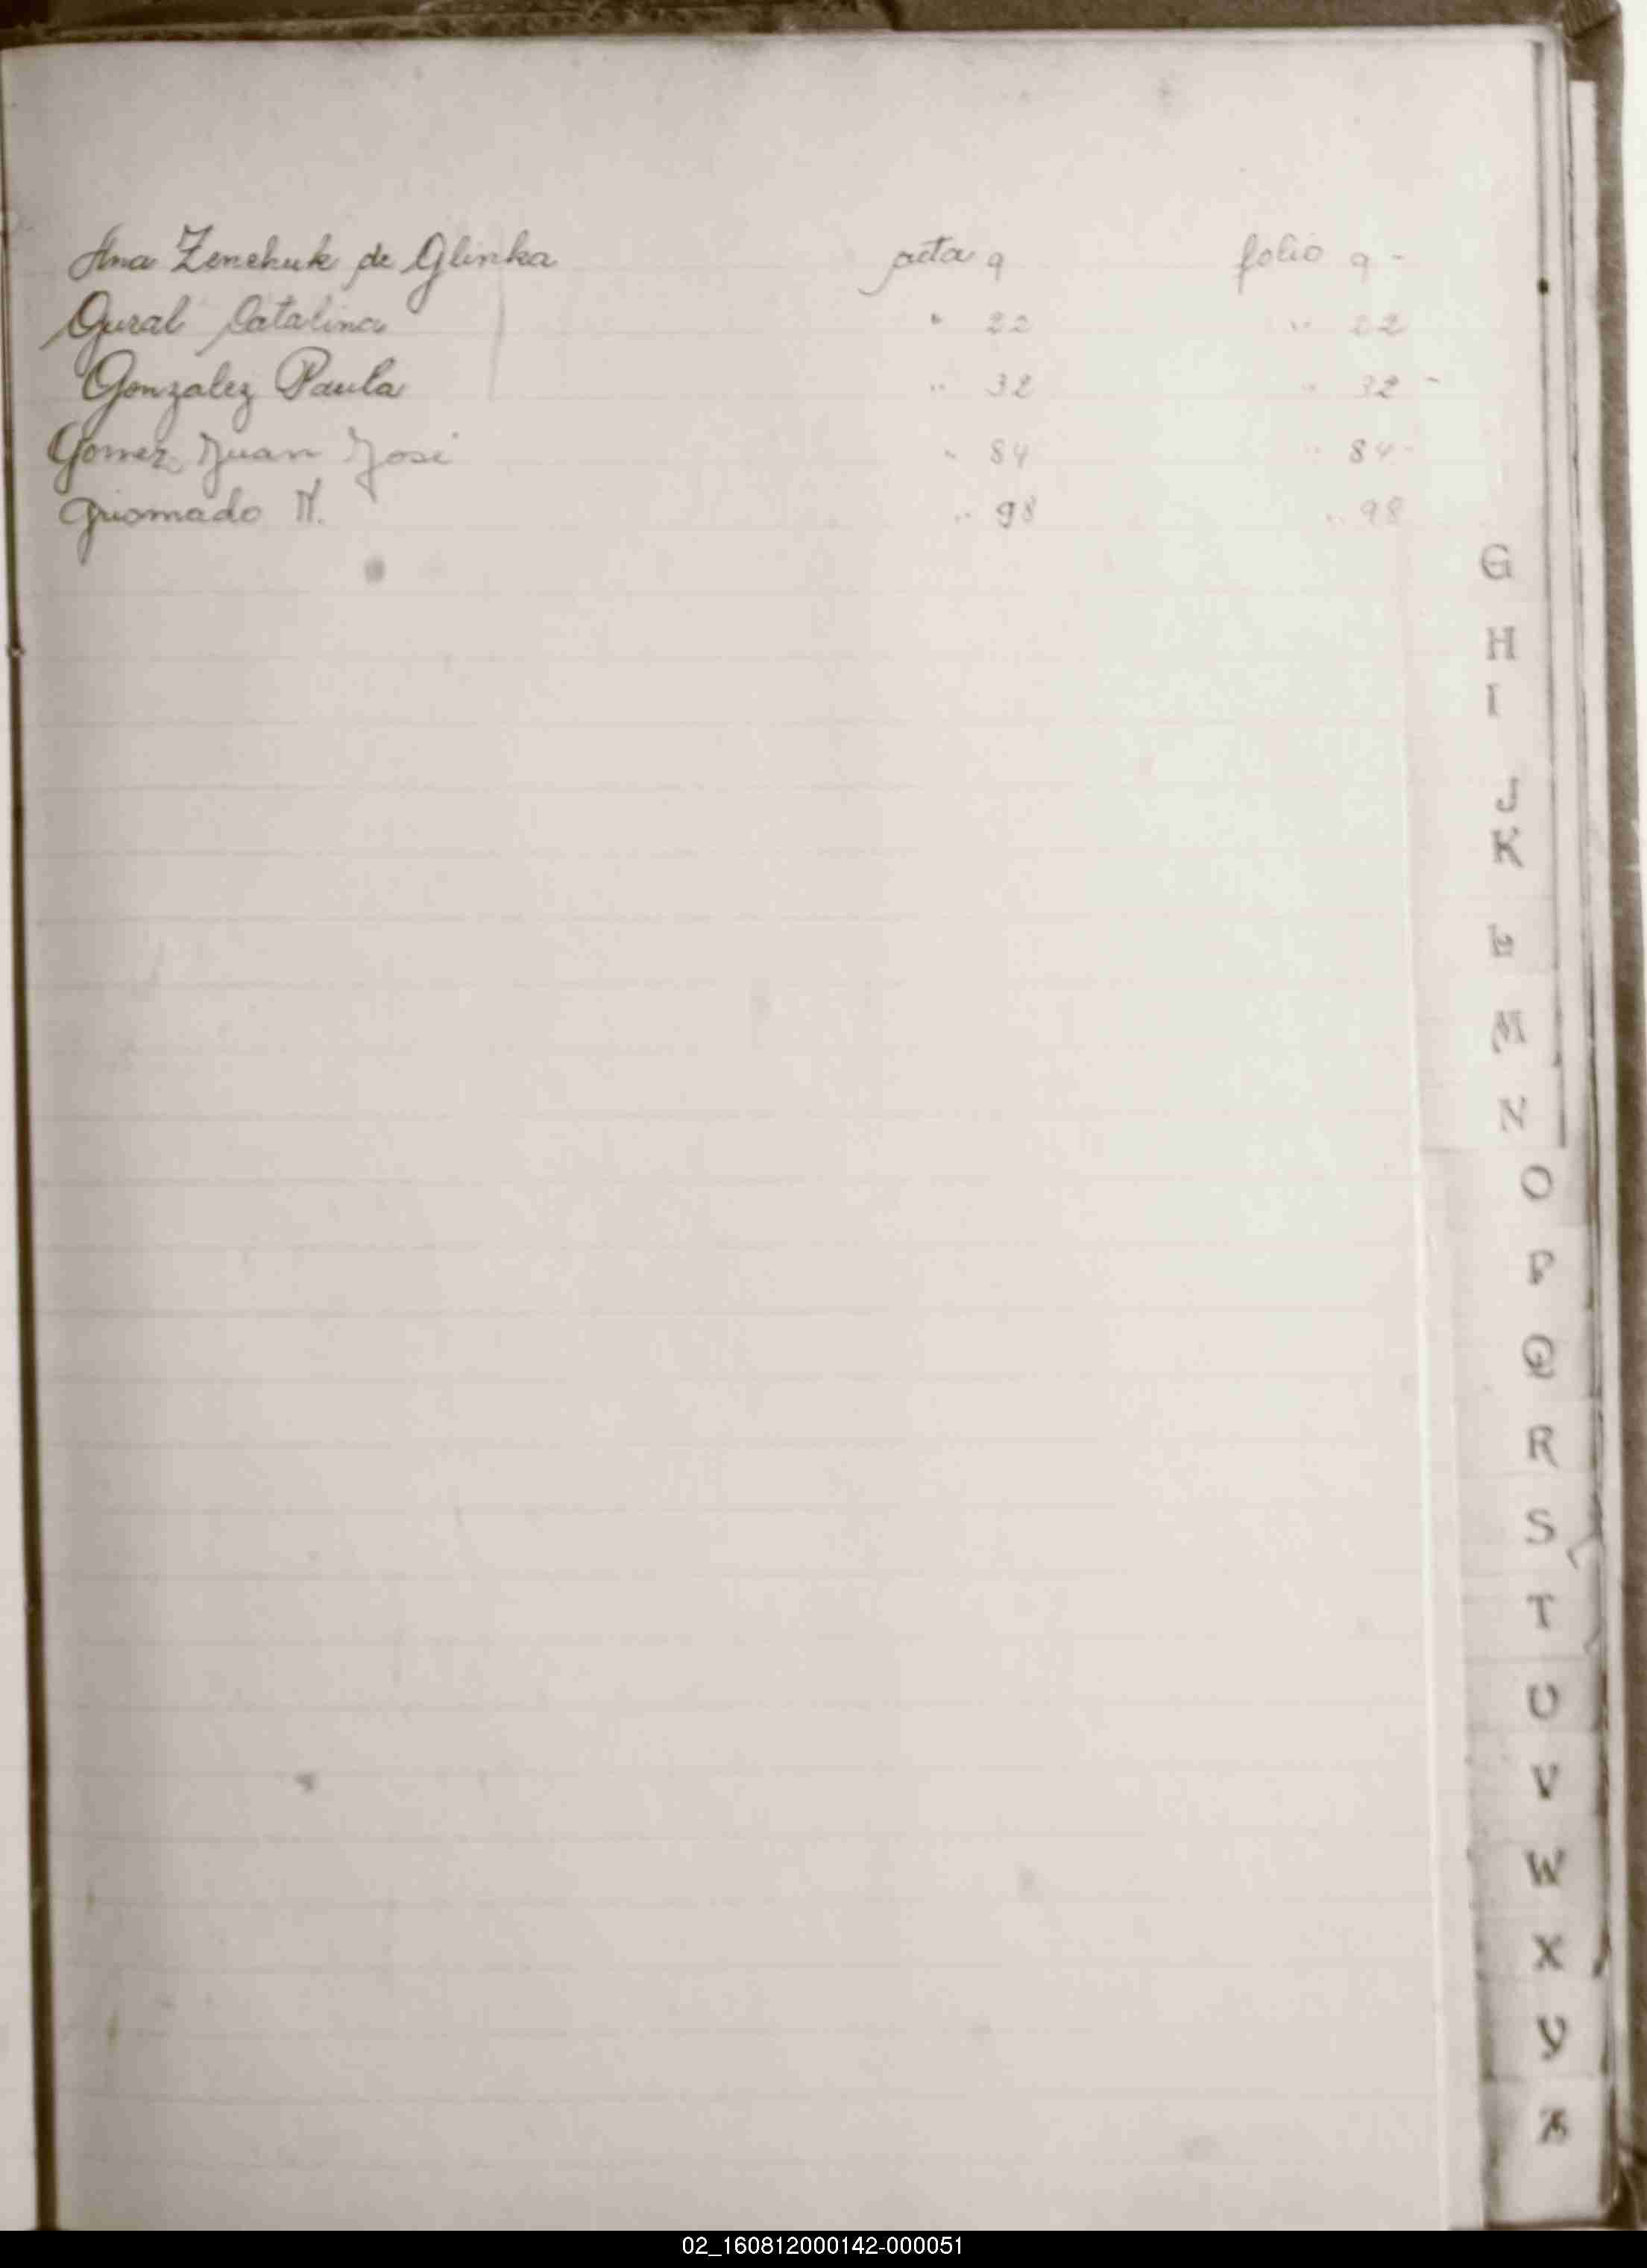 Ana Zenchuk de Glinka acta 9 folio 9 -
Gural Catalina " 22 " 22
Gonzalez Paula " 32 " 32 -
Gomez Juan José " 84 " 84 -
Griomado N. " 98 " 98
G
H
I
J
K
L
M
N
O
P
Q
R
S
T
U
V
W
X
Y
Z
02_160812000142-000051